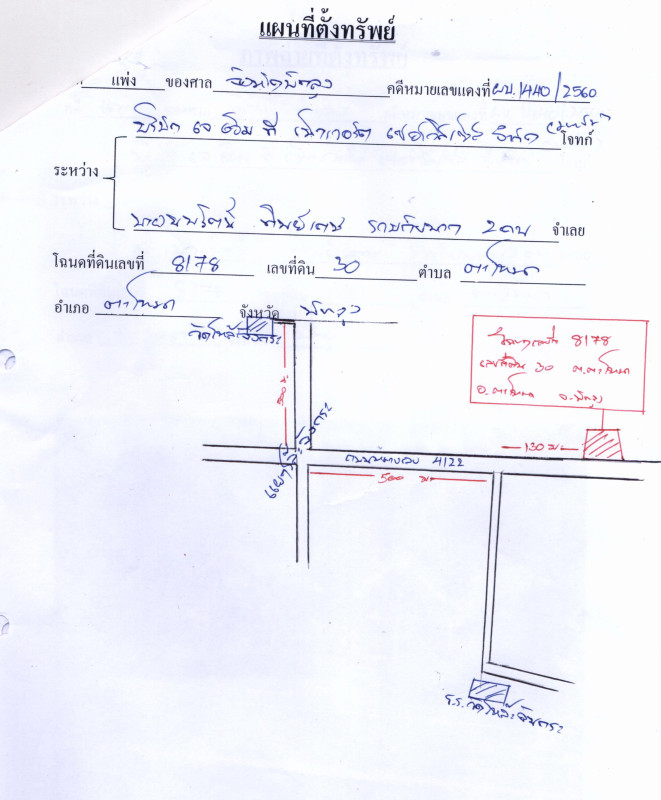 แผนที่ตั้งทรัพย์
แพ่ง ของศาล จังหวัดพัทลุง คดีหมายเลขแดงที่ ผบ.1440/2560
บริษัท เจ เอ็ม ที เน็ทเวอร์ค เซอร์วิสเซ็ส จำกัด (มหาชน) โจทก์
ระหว่าง
ทิพย์เดช รวมกับพวก 2 คน จำเลย
โฉนดที่ดินเลขที่ 8178 เลขที่ดิน 30 ตำบล ตะโหมด
อำเภอ ตะโหมด จังหวัด พัทลุง
โฉนดเลขที่ 8178
เลขที่ดิน 30 ต.ตะโหมด
อ.ตะโหมด จ.พัทลุง
130 ม.
ถนนทางหลวง 4122
500 ม.